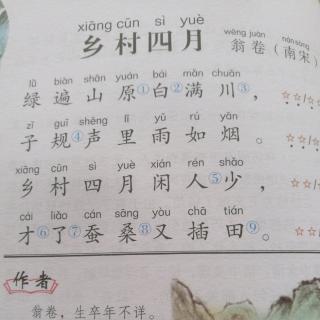 xiāng cūn sì yuè
乡村四月
wēng juàn nán sòng
翁卷（南宋）
lǜ biàn shān yuán bái mǎn chuān
绿遍山原①白②满川③，
zǐ guī shēng lǐ yǔ rú yān
子规④声里雨如烟。
xiāng cūn sì yuè xián rén shǎo
乡村四月闲人⑤少，
cái liǎo cán sāng yòu chā tián
才⑥了⑦蚕桑⑧又插田⑨。
作者
翁卷，生卒年不详。